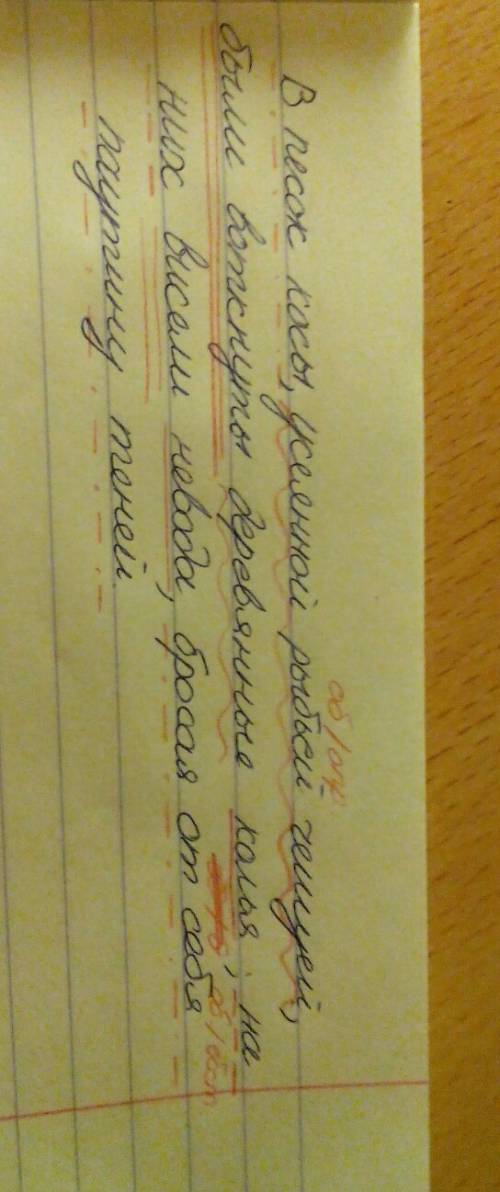 об/опр.
В песок косы, усеянной рыбьей чешуей,
были воткнуты деревянные колья; на
об/обст
них висели невода, бросая от себя
паутину теней.